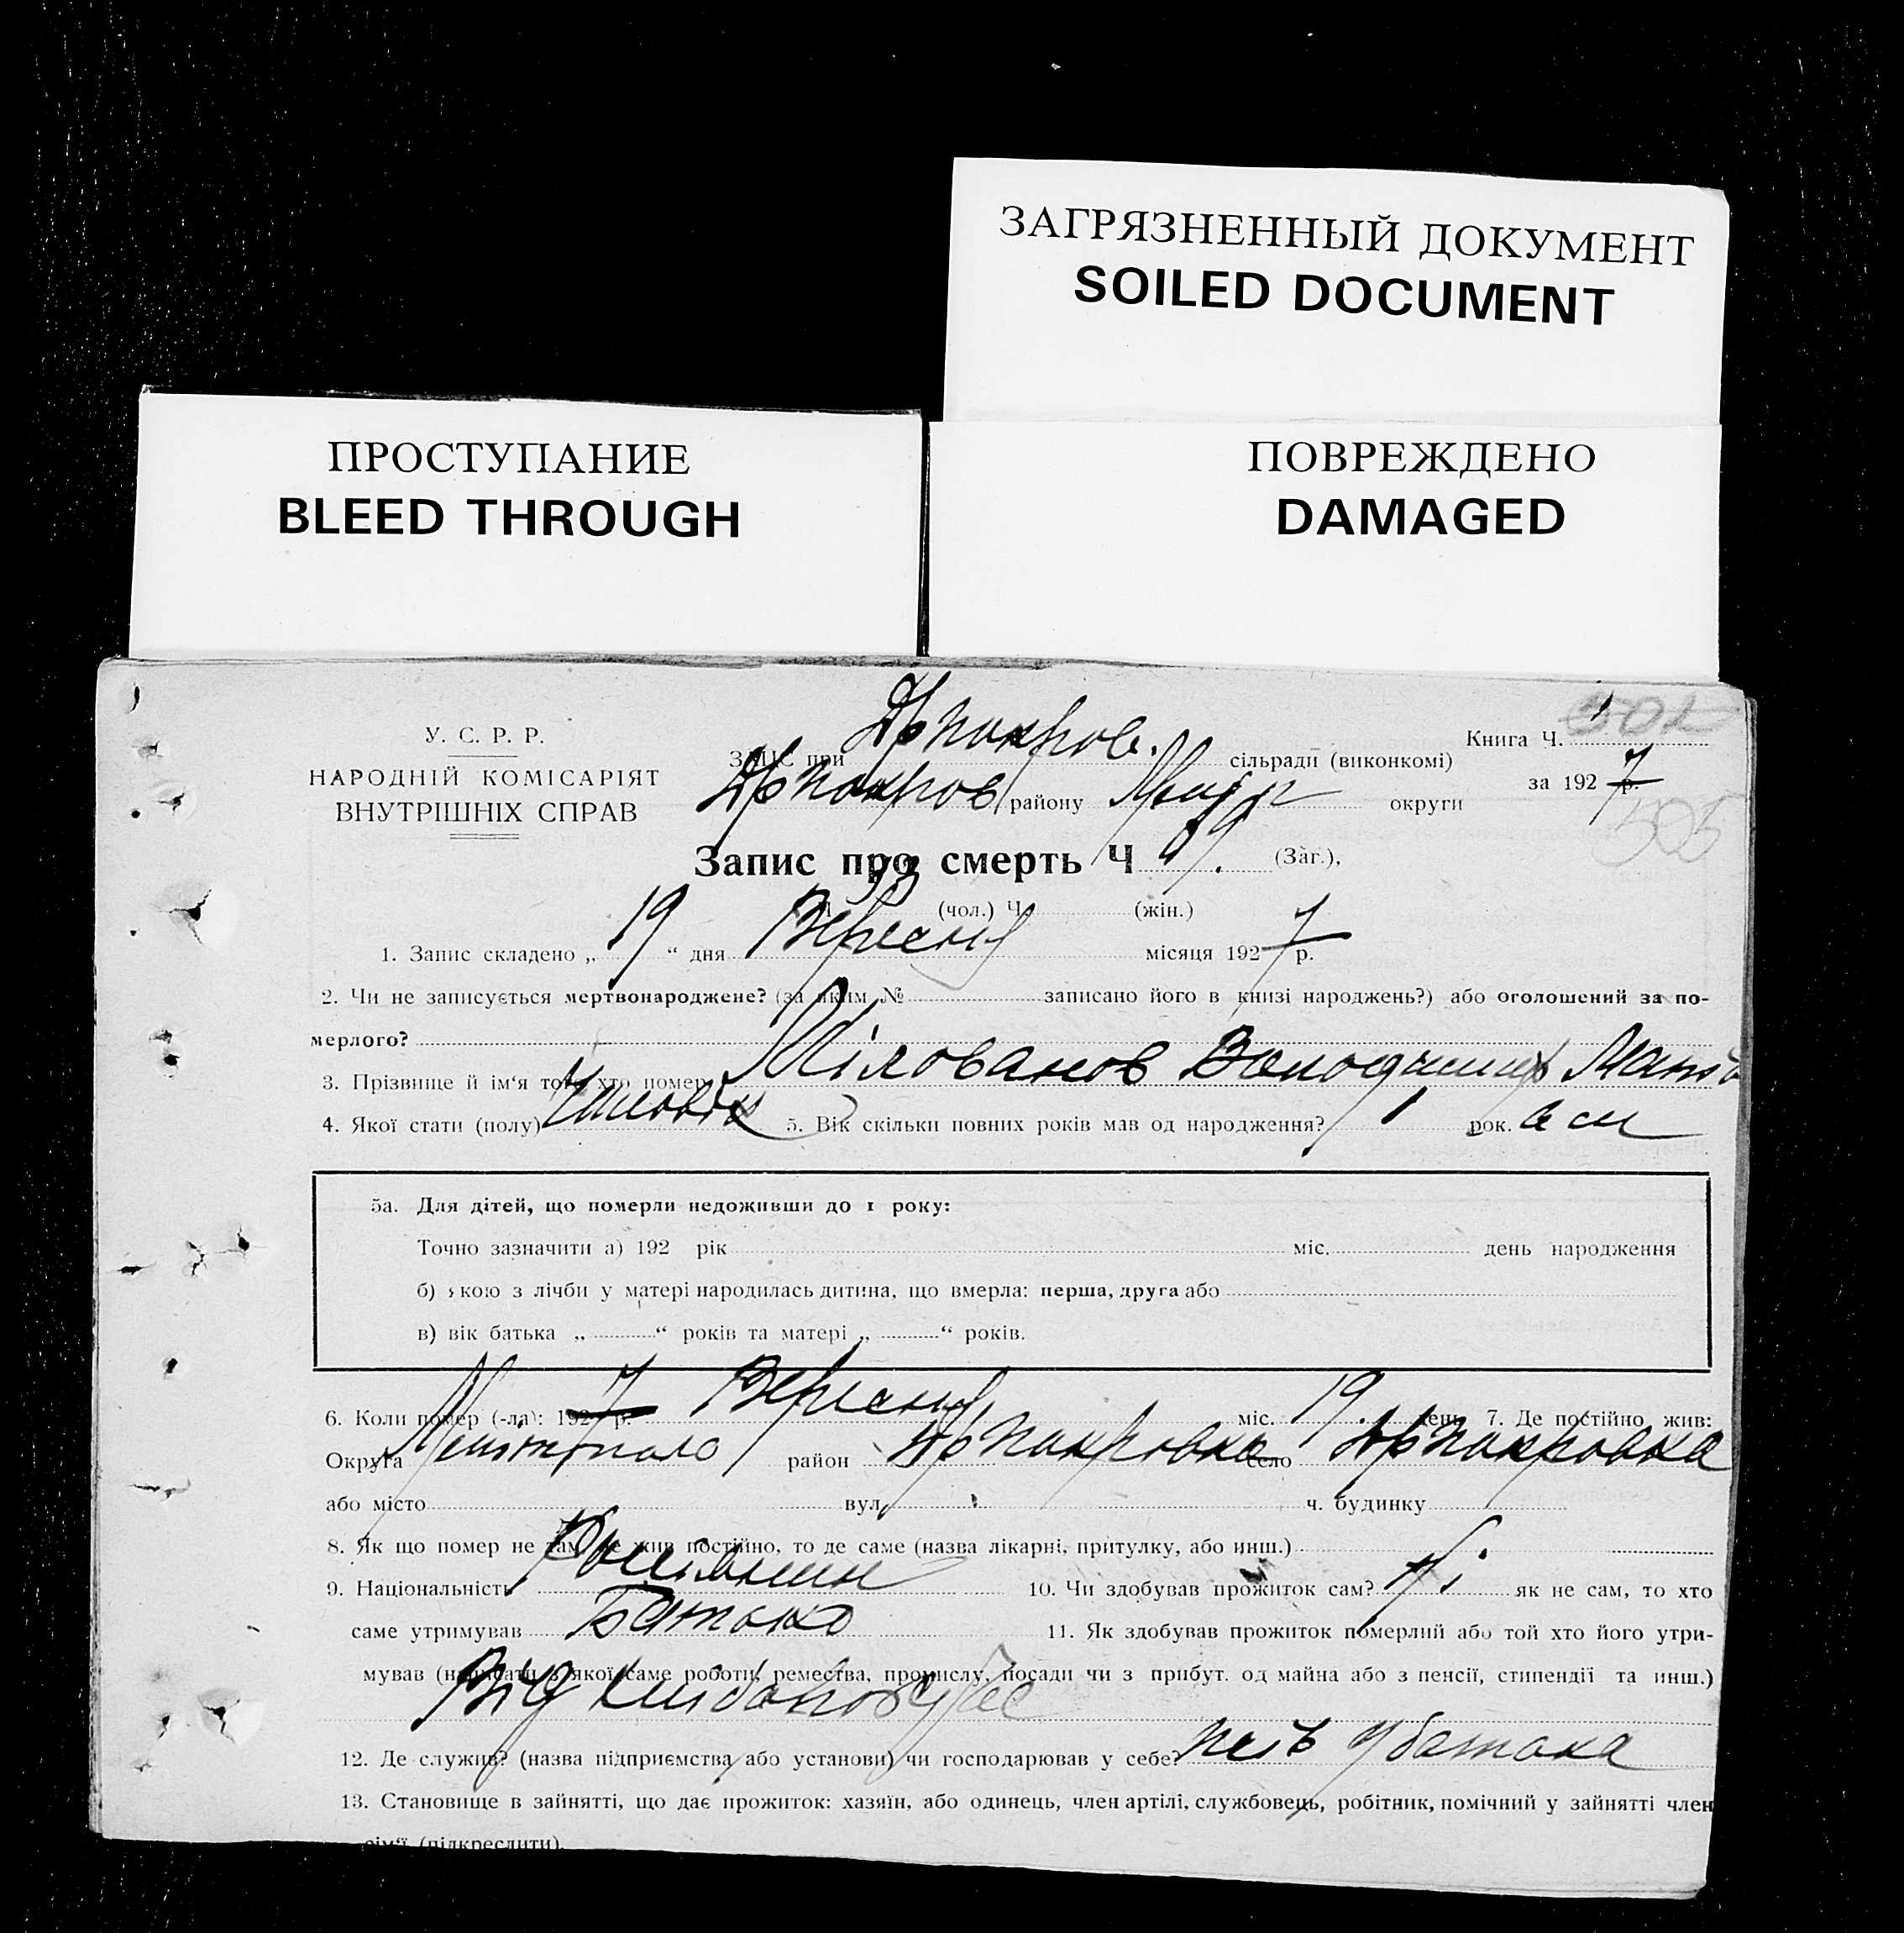 ЗАГРЯЗНЕННЫЙ ДОКУМЕНТ
SOILED DOCUMENT
ПРОСТУПАНИЕ
BLEED THROUGH
ПОВРЕЖДЕНО
DAMAGED
У. С. Р. Р.
НАРОДНІЙ КОМІСАРІЯТ
ВНУТРІШНІХ СПРАВ
ЗАГС при сільради (виконкомі)
району округи
Книга Ч. 1
за 192 7 р.
505
Запис про смерть Ч 69. (Заг.),
33 (чол.) Ч. (жін.)
1. Запис складено „ 19 “ дня Вересня місяця 192 7 р.
2. Чи не записується мертвонароджене? (за яким № записано його в книзі народжень?) або оголошений за по-
мерлого?
3. Прізвище й ім‘я того хто помер Мілованов Володимир
4. Якої стати (полу) Чоловік 5. Вік скільки повних років мав од народження? 1 рок. 6 м
5а. Для дітей, що померли недоживши до 1 року:
Точно зазначити а) 192 рік міс. день народження
б) якою з лічби у матері народилась дитина, що вмерла: перша, друга або
в) вік батька „ “ років та матері „ “ років.
6. Коли помер (-ла): 192 7 р. Вересня міс. 19 день 7. Де постійно жив:
Округа район село
або місто вул. ч. будинку
8. Як що помер не там, де жив постійно, то де саме (назва лікарні, притулку, або инш.)
9. Національність 10. Чи здобував прожиток сам? як не сам, то хто
саме утримував Батько 11. Як здобував прожиток померлий або той хто його утри-
мував (написати з якої саме роботи, ремества, промислу, посади чи з прибут. од майна або з пенсії, стипендії та инш.)
Від
12. Де служив? (назва підприємства або установи) чи господарював у себе? у батька
13. Становище в зайнятті, що дає прожиток: хазяїн, або одинець, член артілі, службовець, робітник, помічний у зайнятті член
сім‘ї (підкреслити).